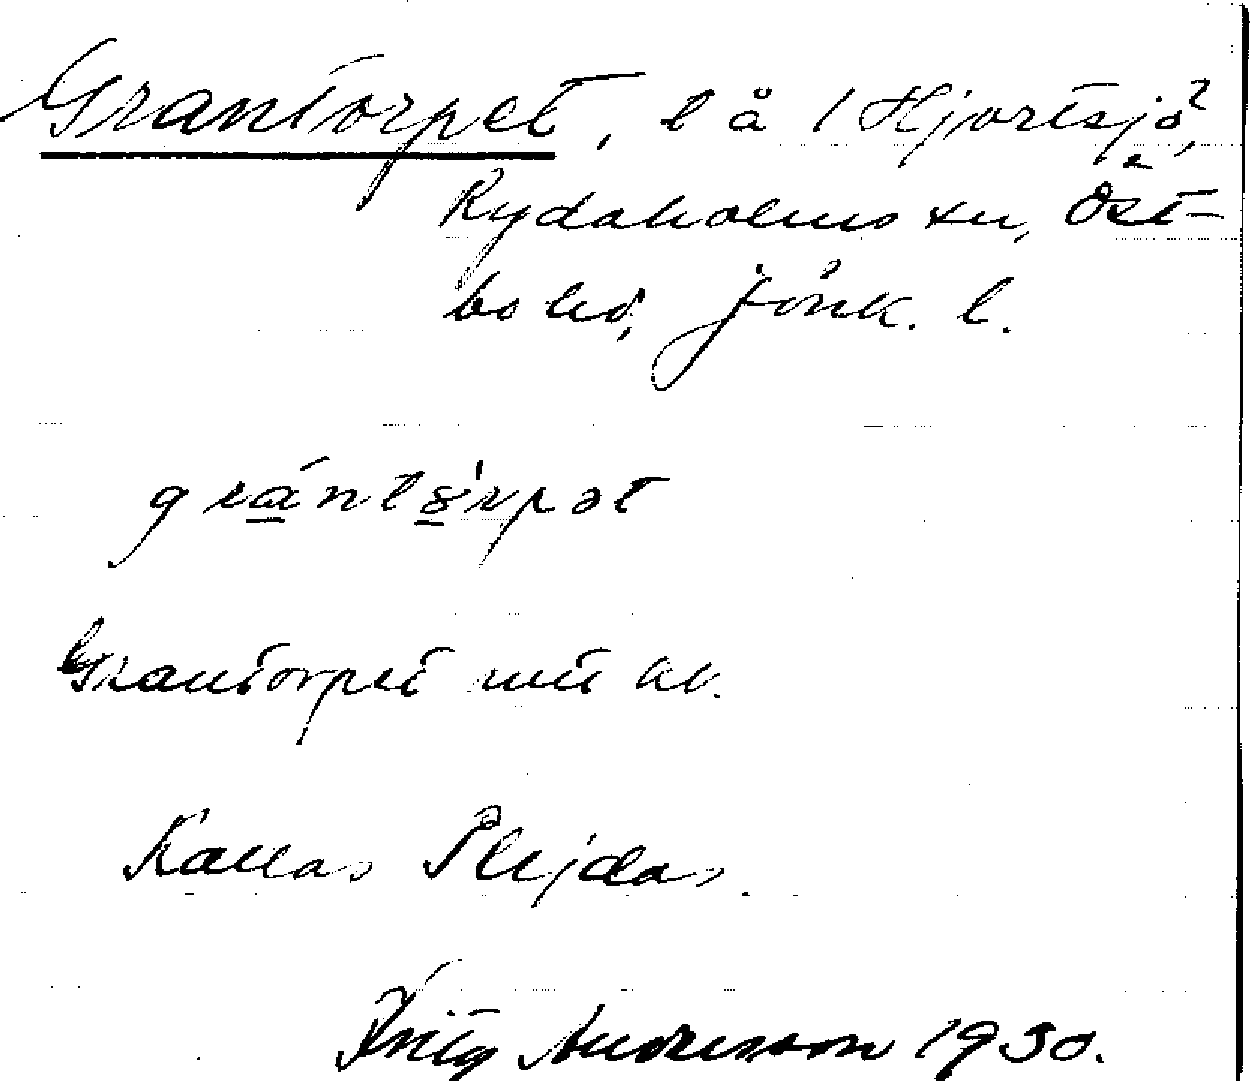 Grantorpet, l å 1 Hjortsjö,
Rydaholms sn, Öst-
bo hd, Jönk. l.
grántórpət
Grantorpet
Kallas Plejdas.
Fritz Andersson 1930.